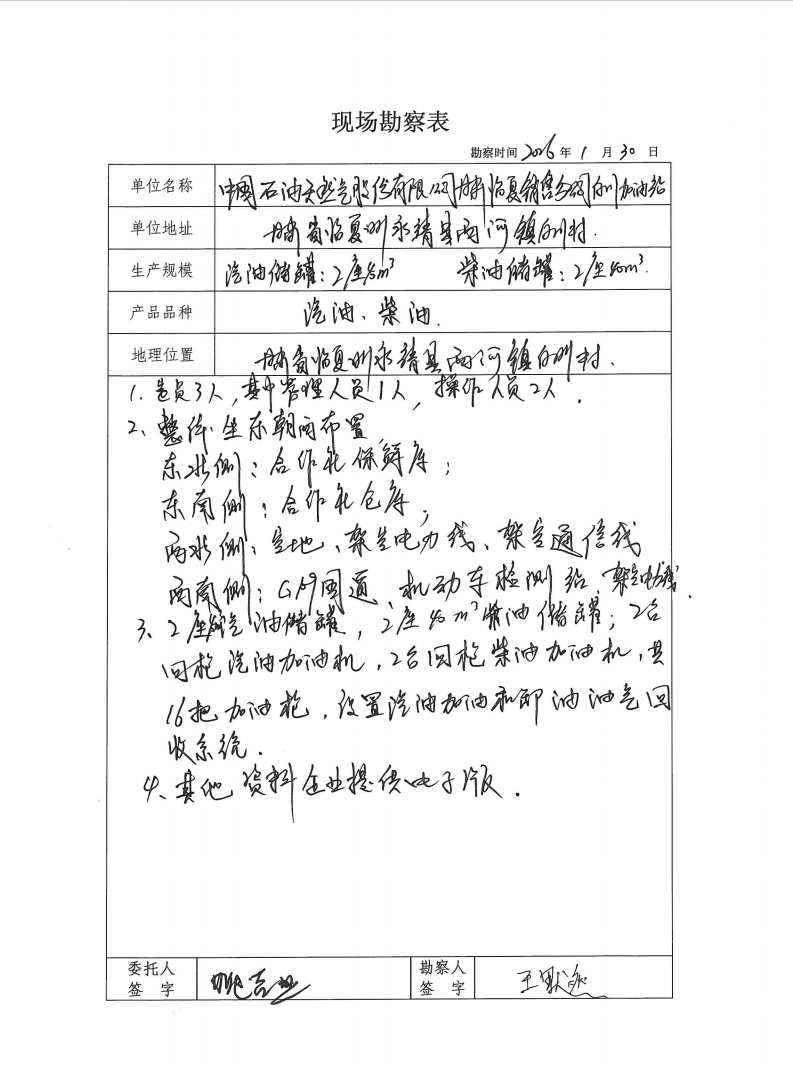 现场勘察表
勘察时间 2026 年 1 月 30 日
单位名称 中国石油天然气股份有限公司甘肃临夏销售分公司白川加油站
单位地址 甘肃省临夏州永靖县西河镇白川村.
生产规模 汽油储罐：2座40m³ 柴油储罐：2座40m³.
产品品种 汽油、柴油.
地理位置 甘肃省临夏州永靖县西河镇白川村.
1. 定员3人，其中管理人员1人，操作人员2人.
2、整体坐东朝西布置
东北侧：合作社保鲜库；
东南侧：合作社仓库；
西北侧：空地、架空电力线、架空通信线
西南侧：国道、机动车检测站、架空电力线.
3、2座40m³汽油储罐，2座40m³柴油储罐；2台
四枪汽油加油机，2台四枪柴油加油机，共
16把加油枪，设置汽油加油和卸油油气回
收系统.
4、其他资料企业提供电子版.
委托人 勘察人
签 字 签 字 王